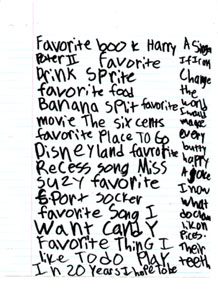 Favorite book Harry
Poter II Favorite
Drink Sprite
favorite food
Banana split favorite
movie The six cents
favorite Place To Go
Disneyland favrorite
Recess song Miss
suzy favorite
Sport socker
favorite Song I
Want Candy
Favorite Thing I
like To do Play
In 20 Years I hope to be
A Singer
If I ran
Change
the
world
I would
make
every
butty
happy
A joke
I now
What
do clown
lik on
Pices.
Their
teeth